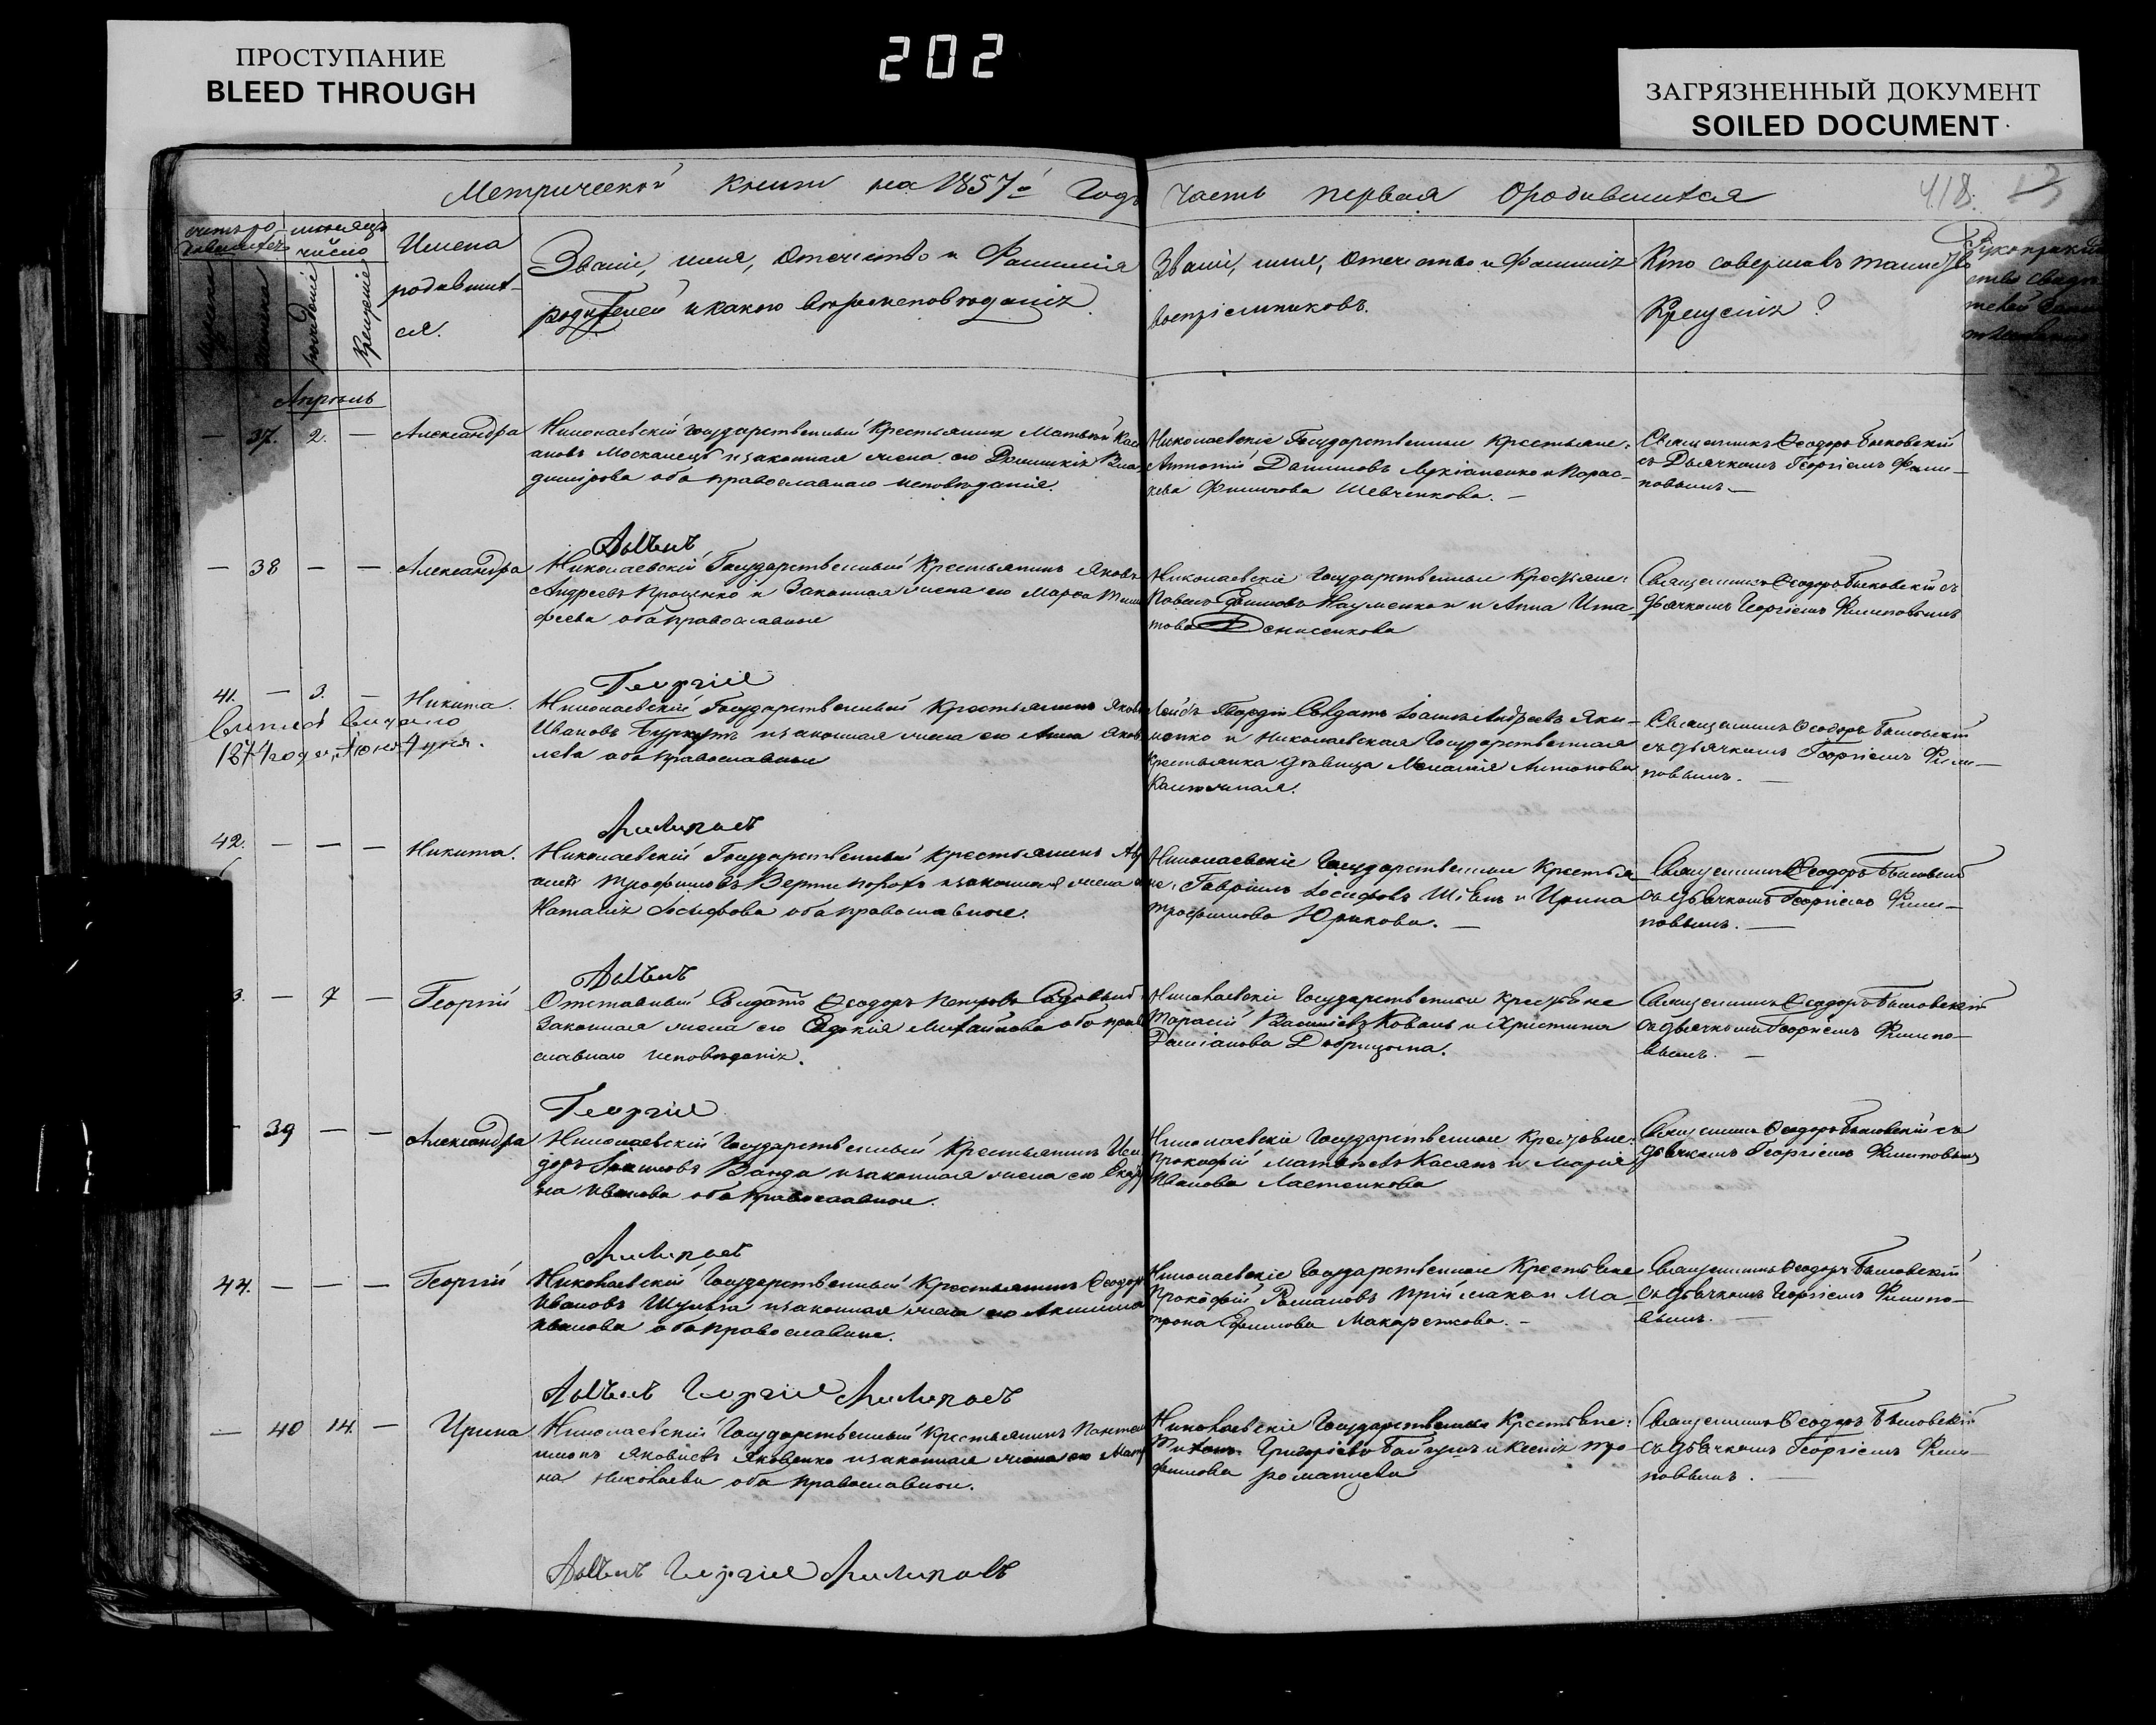 ПРОСТУПАНИЕ
BLEED THROUGH
202
ЗАГРЯЗНЕННЫЙ ДОКУМЕНТ
SOILED DOCUMENT
Метрической книги на 1857й Годъ часть первая о родившихся
418.
месяцъ
число
Имена
родившихся.
Званіе, имя, отечество и Фамилія
родителей и какого вѣроисповѣданія.
Званіе, имя, отечество и Фамилія
воспріемниковъ.
Кто совершалъ таинство
Крещенія?
рожденія
Крещенія
Апрѣль
— 37. 2. — Александра
Николаевскій государственный Крестьянинъ Матвѣй
Москалецъ и законная жена его
оба православнаго исповѣданія.
Николаевскіе Государственные крестьяне:
Антоній Даниловъ Лукіаненко и Парас-
кева Филипова Шевченкова. —
Священникъ Ѳеодоръ Быковскій
съ Дьячкомъ Георгіемъ Фили-
повымъ. —
— 38 — — Александра
Николаевскій Государственный Крестьянинъ Яковъ
Андреевъ Проценко и Законная жена его Марѳа Тимо
феева оба православные
Николаевскіе государственные Крестьяне:
Павелъ Ефимовъ Науменко и Анна Игна
това Денисенкова
Священникъ Ѳеодоръ Быковскій съ
дьячкомъ Георгіемъ Филиповымъ
Георгіе
41. — 3. — Никита.
1874 года, Іюня 4 дня.
Николаевскій Государственный Крестьянинъ Яковъ
Ивановъ Буркутъ и законная жена его Анна Яков
лева оба православные
Гвардіи Солдатъ Іоаннъ Андреевъ Яки-
менко и Николаевская Государственная
Крестьянка дѣвица Меланія Антонова
Священникъ Ѳеодоръ Быковскій
съ дьячкомъ Георгіемъ Фили-
повымъ. —
Филиповъ
42. — — — Никита.
Николаевскій Государственный крестьянинъ
Трофимовъ Вертипорохъ и законная жена
Наталія Іосифова оба православные.
Николаевскіе Государственные Крестья
не: Гавріилъ Іосифовъ Швецъ и Ирина
Трофимова Юрикова. —
Священникъ Ѳеодоръ Быковскій
съ дьячкомъ Георгіемъ Фили-
повымъ. —
3. — 7 — Георгій
Отставный Солдатъ Ѳеодоръ Петровъ Садовый
Законная жена его Евдокія Михайлова оба право
славнаго исповѣданія.
Николаевскіе Государственные крестьяне
Тарасій Васильевъ Коваль и Христина
Даміанова
Священникъ Ѳеодоръ Быковскій
съ дьячкомъ Георгіемъ Филипо-
вымъ. —
Георгіе
39 — — Александра
Николаевскій Государственный Крестьянинъ Иси
доръ Ванда и законная жена его
на Иванова оба православные.
Николаевскіе Государственные крестьяне:
Прокофій Матвѣевъ Касянъ и Марія
Иванова Ластенкова
Священникъ Ѳеодоръ Быковскій съ
дьячкомъ Георгіемъ Филиповымъ
Филиповъ
44. — — — Георгій
Николаевскій Государственный Крестьянинъ Ѳеодоръ
Ивановъ Шульга и законная жена его Акилина
Иванова оба православные.
Николаевскіе Государственные Крестьяне
Прокофій Романовъ Пріймакъ и Ма-
трона Ефимова Макаренкова. —
Священникъ Ѳеодоръ Быковскій
съ дьячкомъ Георгіемъ Филипо-
вымъ. —
Георгіе Филиповъ
— 40 14. — Ирина
Николаевскій Государственный Крестьянинъ Пантелеи
монъ Яковлевъ Яковенко и законная жена его Матро
на Николаева оба православные.
Николаевскіе Государственные Крестьяне:
Григоріевъ и Ксенія Тро-
фимова
Священникъ Ѳеодоръ Быковскій
съ дьячкомъ Георгіемъ Фили-
повымъ. —
Георгіе Филиповъ